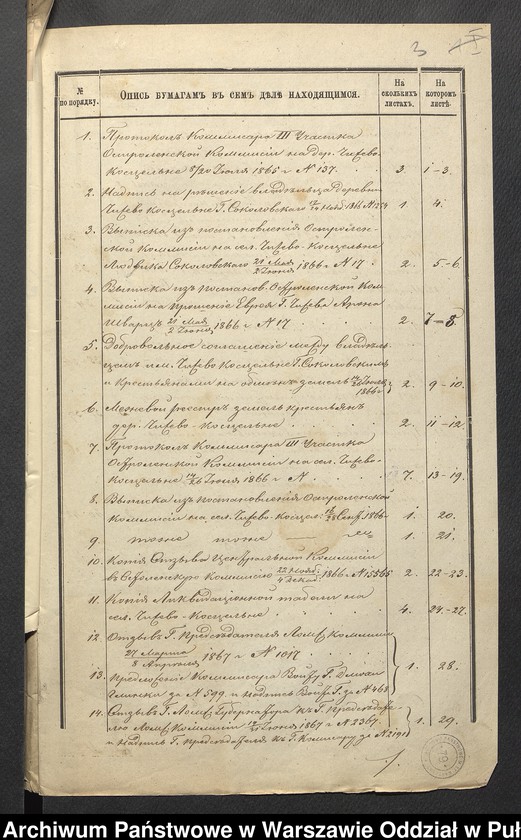 3
№ по порядку.
Опись бумагамъ въ семъ дѣлѣ находящимся.
На сколькихъ листахъ.
На которомъ листѣ.
1. Протоколъ Коммисара III Участка
Остроленской Коммисіи на дер. Чижево-
Косцельне 8/20 Іюля 1865 г. N 137. 3. 1-3.
2. Надпись на рѣшеніе владѣльца деревни
Чижево Косцельне Г. Соколовскаго 1. 4.
3. Выписка изъ постановленія Остролен-
ской Коммисіи на сел. Чижево-Косцельне
Людвика Соколовскаго 21 Мая/2 Іюня 1866 г. N 17. 2. 5-6.
4. Выписка изъ постанов. Остроленской Ком
мисіи на прошеніе Еврея г. Чижева Арона
Шварцъ 21 Мая/2 Іюня 1866 г. N 17 2. 7-8.
5. Добровольное соглашеніе между владѣль-
цемъ им. Чижево Косцельне Г. Соколовскимъ
и Крестьянами на обменъ земель 1866 г. 2. 9-10.
6. Межевой реестръ земель крестьянъ
дер. Чижево-Косцельне 2. 11-12.
7. Протоколъ Коммисара III Участка
Остроленской Коммисіи на сел. Чижево-
Косцельне 14/26 Іюня 1866 г. N 7. 13-19.
8. Выписка изъ постановленія Остроленской
Коммисіи на сел. Чижево-Косцел: 16/28 Сент. 1866 1. 20.
9. тоже тоже 1. 21.
10. Копія Отзыва Центральной Коммисіи
въ Коммисію 22 Нояб:/4 Декаб: 1866 г. N 15565 2. 22-23.
11. Копія Ликвидаціонной табели на
сел. Чижево-Косцельне 4. 24-27.
12. Отзывъ Г. Предсѣдателя Ломж. Коммисіи
27 Марта/8 Апрѣля 1867 г. N 1017
13. Предложеніе Коммисара Войту Г. Дмохи
Глинки за N 599 и надпись Войта Г. за N 468 1. 28.
14. Отзывъ Г. Ломж. Губернатора къ Г. Предсѣдате-
лю Ломж. Коммисіи Іюня 1867 г. N 2367.
и Надпись Г. Предсѣдателя къ Г. Комисару за N 2191 1. 29.
Archiwum Państwowe w Warszawie Oddział w Puł